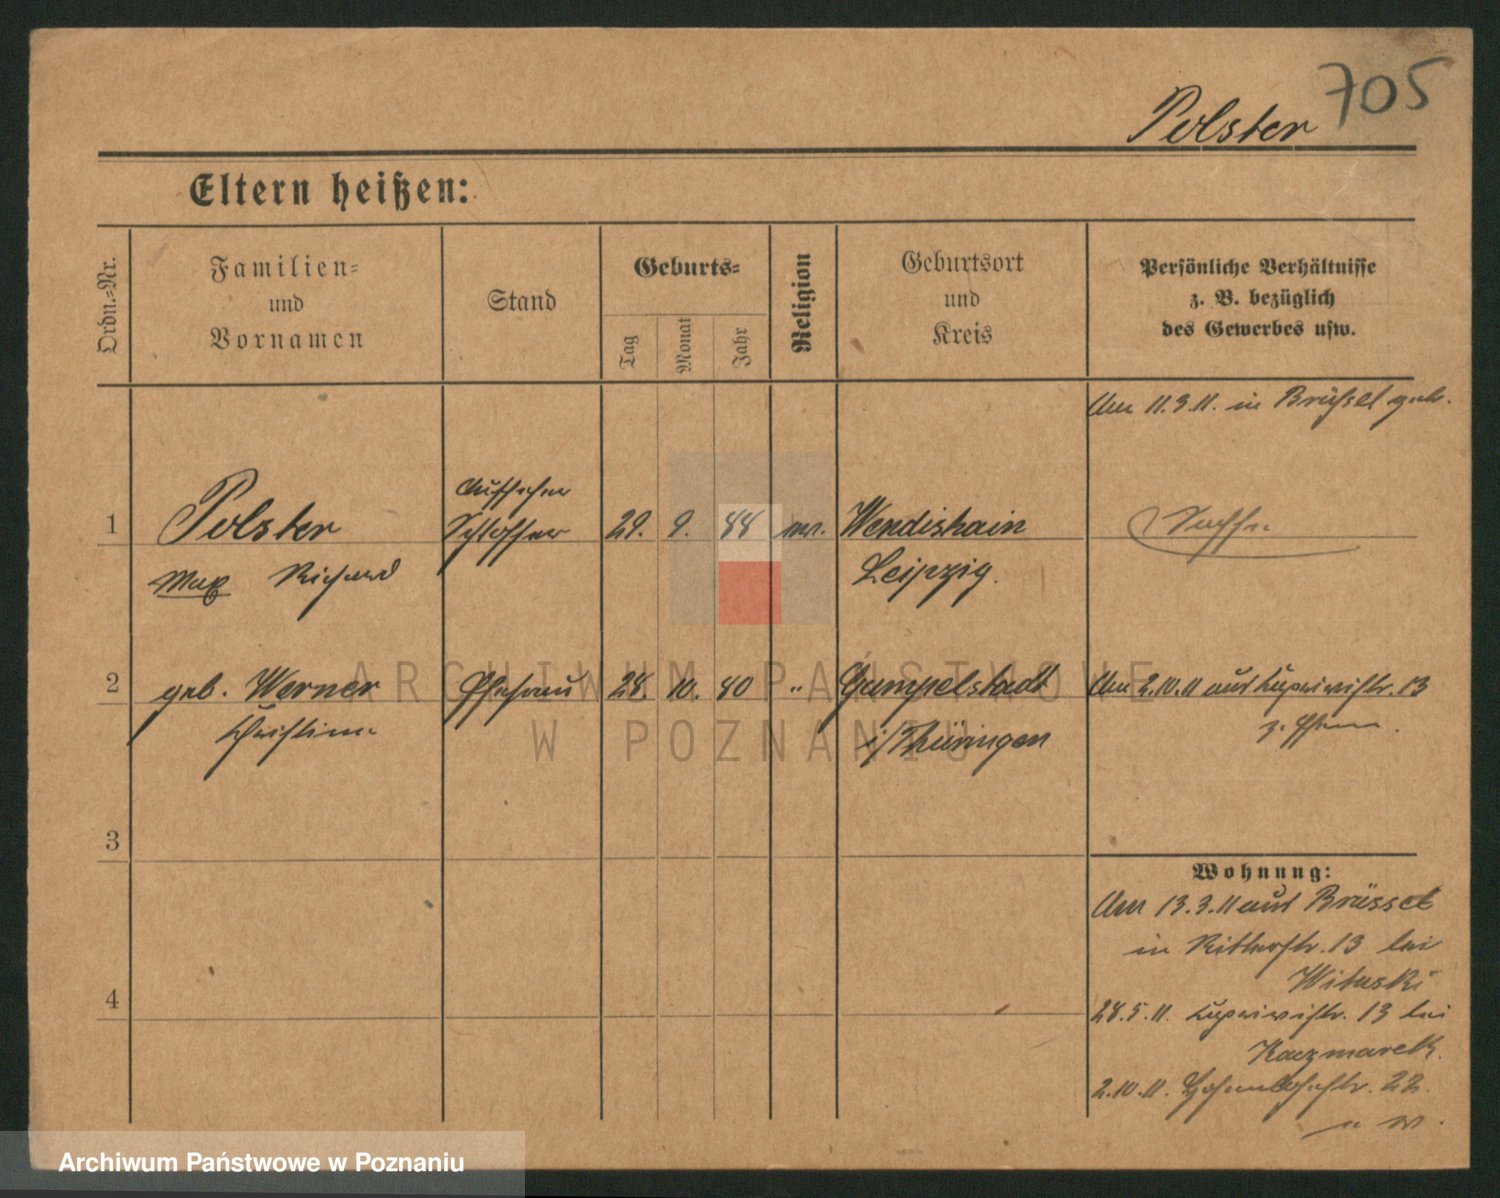 705
Polster
Eltern heißen:
Ordn.-Nr.
Familien-
und
Vornamen
Stand
Geburts-
Tag
Monat
Jahr
Religion
Geburtsort
und
Kreis
Persönliche Verhältnisse
z. B. bezüglich
des Gewerbes usw.
Am 11.3.11. in Brüssel geh.
1 Polster Aufseher Schlosser 29. 9. 88 Wendishain
Max Richard Leipzig.
2 geb. Werner Ehefrau 28. 10. 80 " Gumpelstadt Am 2.10.11 aus 13
Christine i/Thüringen
3
Wohnung:
Am 13.3.11 aus Brüssel
in Ritterstr. 13 bei
Wituski
4
28.5.11. 13 bei
Kaczmarek.
2.10.11. 22
ARCHIWUM PAŃSTWOWE
W POZNANIU
Archiwum Państwowe w Poznaniu